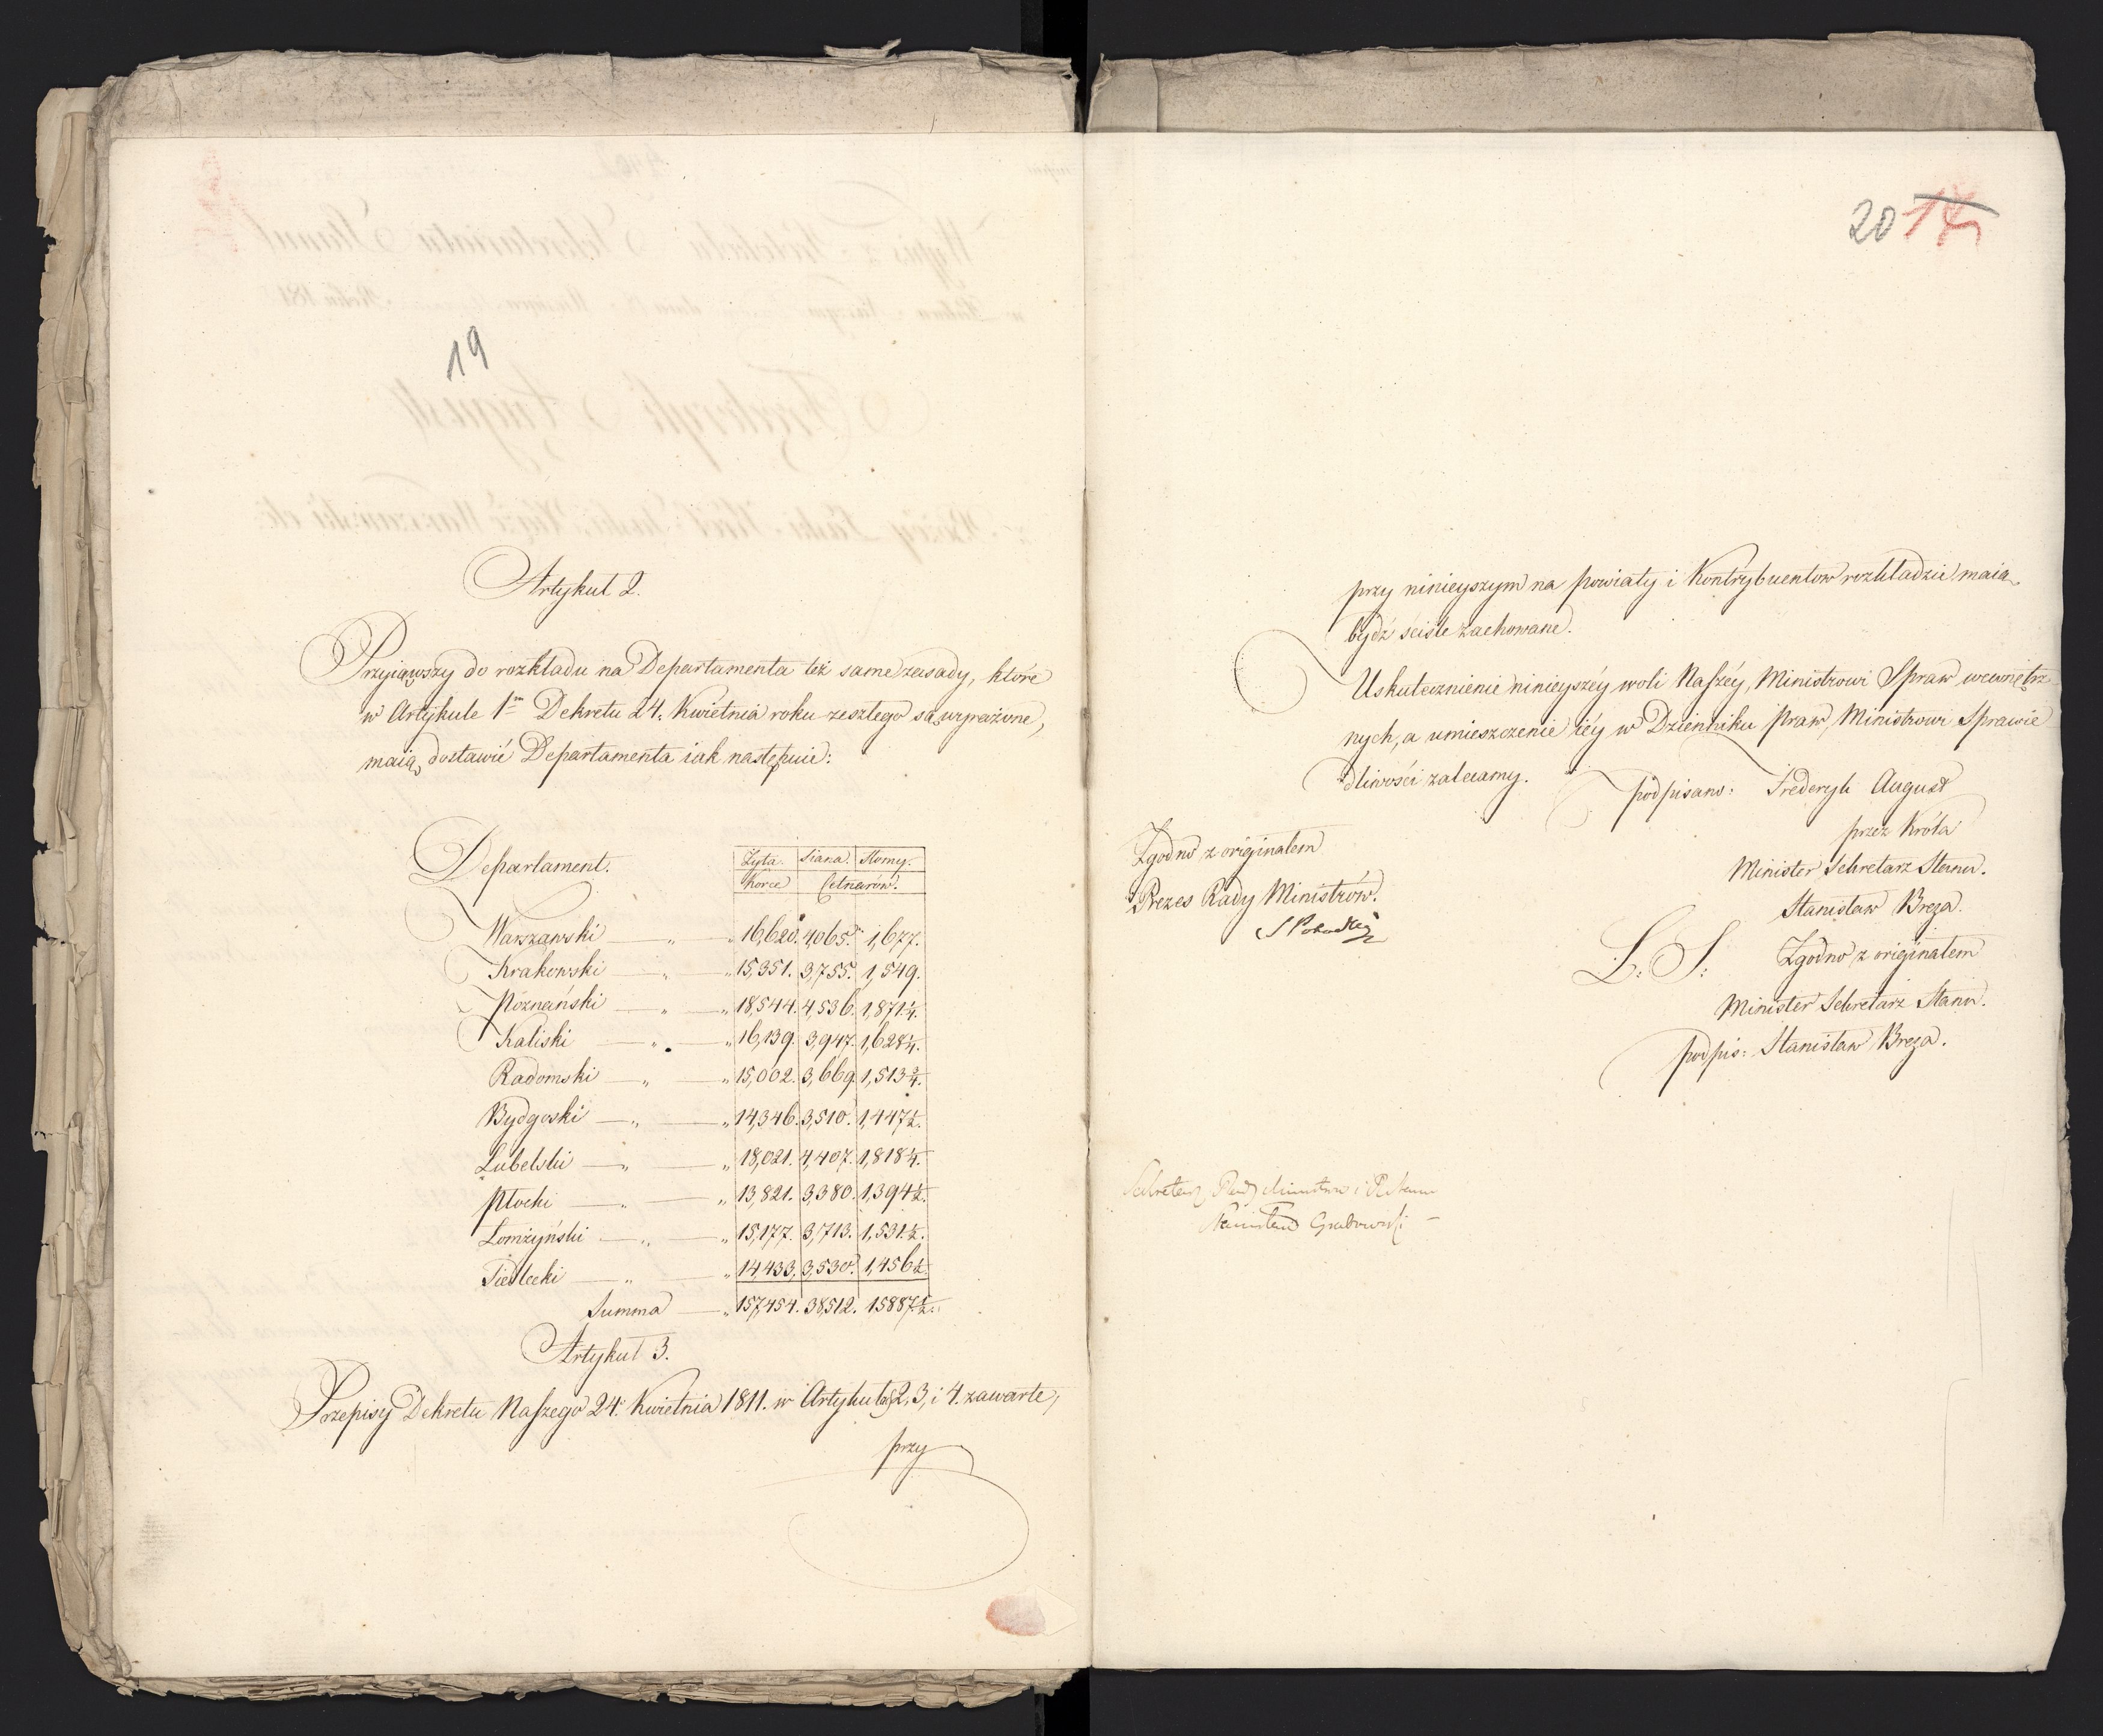 19
Artykuł 2.
Przyiąwszy do rozkładu na Departamenta też same zasady, które
w Artykule 1m Dekretu 24. Kwietnia roku zeszłego są wyrażone,
maią dostawić Departamenta iak następuie:
Departament. Żyta. Siana. Słomy.
Korce Cetnarów.
Warszawski — „ — „ 16,620. 4,065. 1,677.
Krakowski — „ — „ 15,351. 3,755. 1,549.
Poznański — „ — „ 18,544. 4,536. 1,871 1/4.
Kaliski — „ — „ 16,139. 3,947. 1,628 1/4.
Radomski — „ — „ 15,002. 3,669. 1,513 3/4.
Bydgoski — „ — „ 14,346. 3,510. 1,447 1/2.
Lubelski — „ — „ 18,021. 4,407. 1,818 1/4.
Płocki — „ — „ 13,821. 3,380. 1,394 1/2.
Łomżyński — „ — „ 15,177. 3,713. 1,531 1/2.
Siedlecki — „ — „ 14,433. 3,530. 1,456 1/2.
Summa — „ 157,454. 38,512. 15887 1/2.
Artykuł 3.
Przepisy Dekretu Naszego 24. Kwietnia 1811. w Artykułach 2, 3, i 4. zawarte,
przy
20
przy ninieyszym na powiaty i Kontrybuentow rozkładzie maią
bydź ściśle zachowane.
Uskutecznienie ninieyszéy woli Naszéy, Ministrowi Spraw wewnętrz-
nych, a umieszczenie iéy w Dzienniku praw, Ministrowi Sprawie
dliwości zalecamy.
podpisano: Frederyk August
przez Króla
Minister Sekretarz Stanu.
Stanisław Breza.
L: S: Zgodno z originałem
Minister Sekretarz Stanu.
podpis: Stanisław Breza.
Zgodno z originałem
Prezes Rady Ministrów.
S Potocki
Sekretarz Rady Ministrów i Stanu
Stanisław Grabowski —